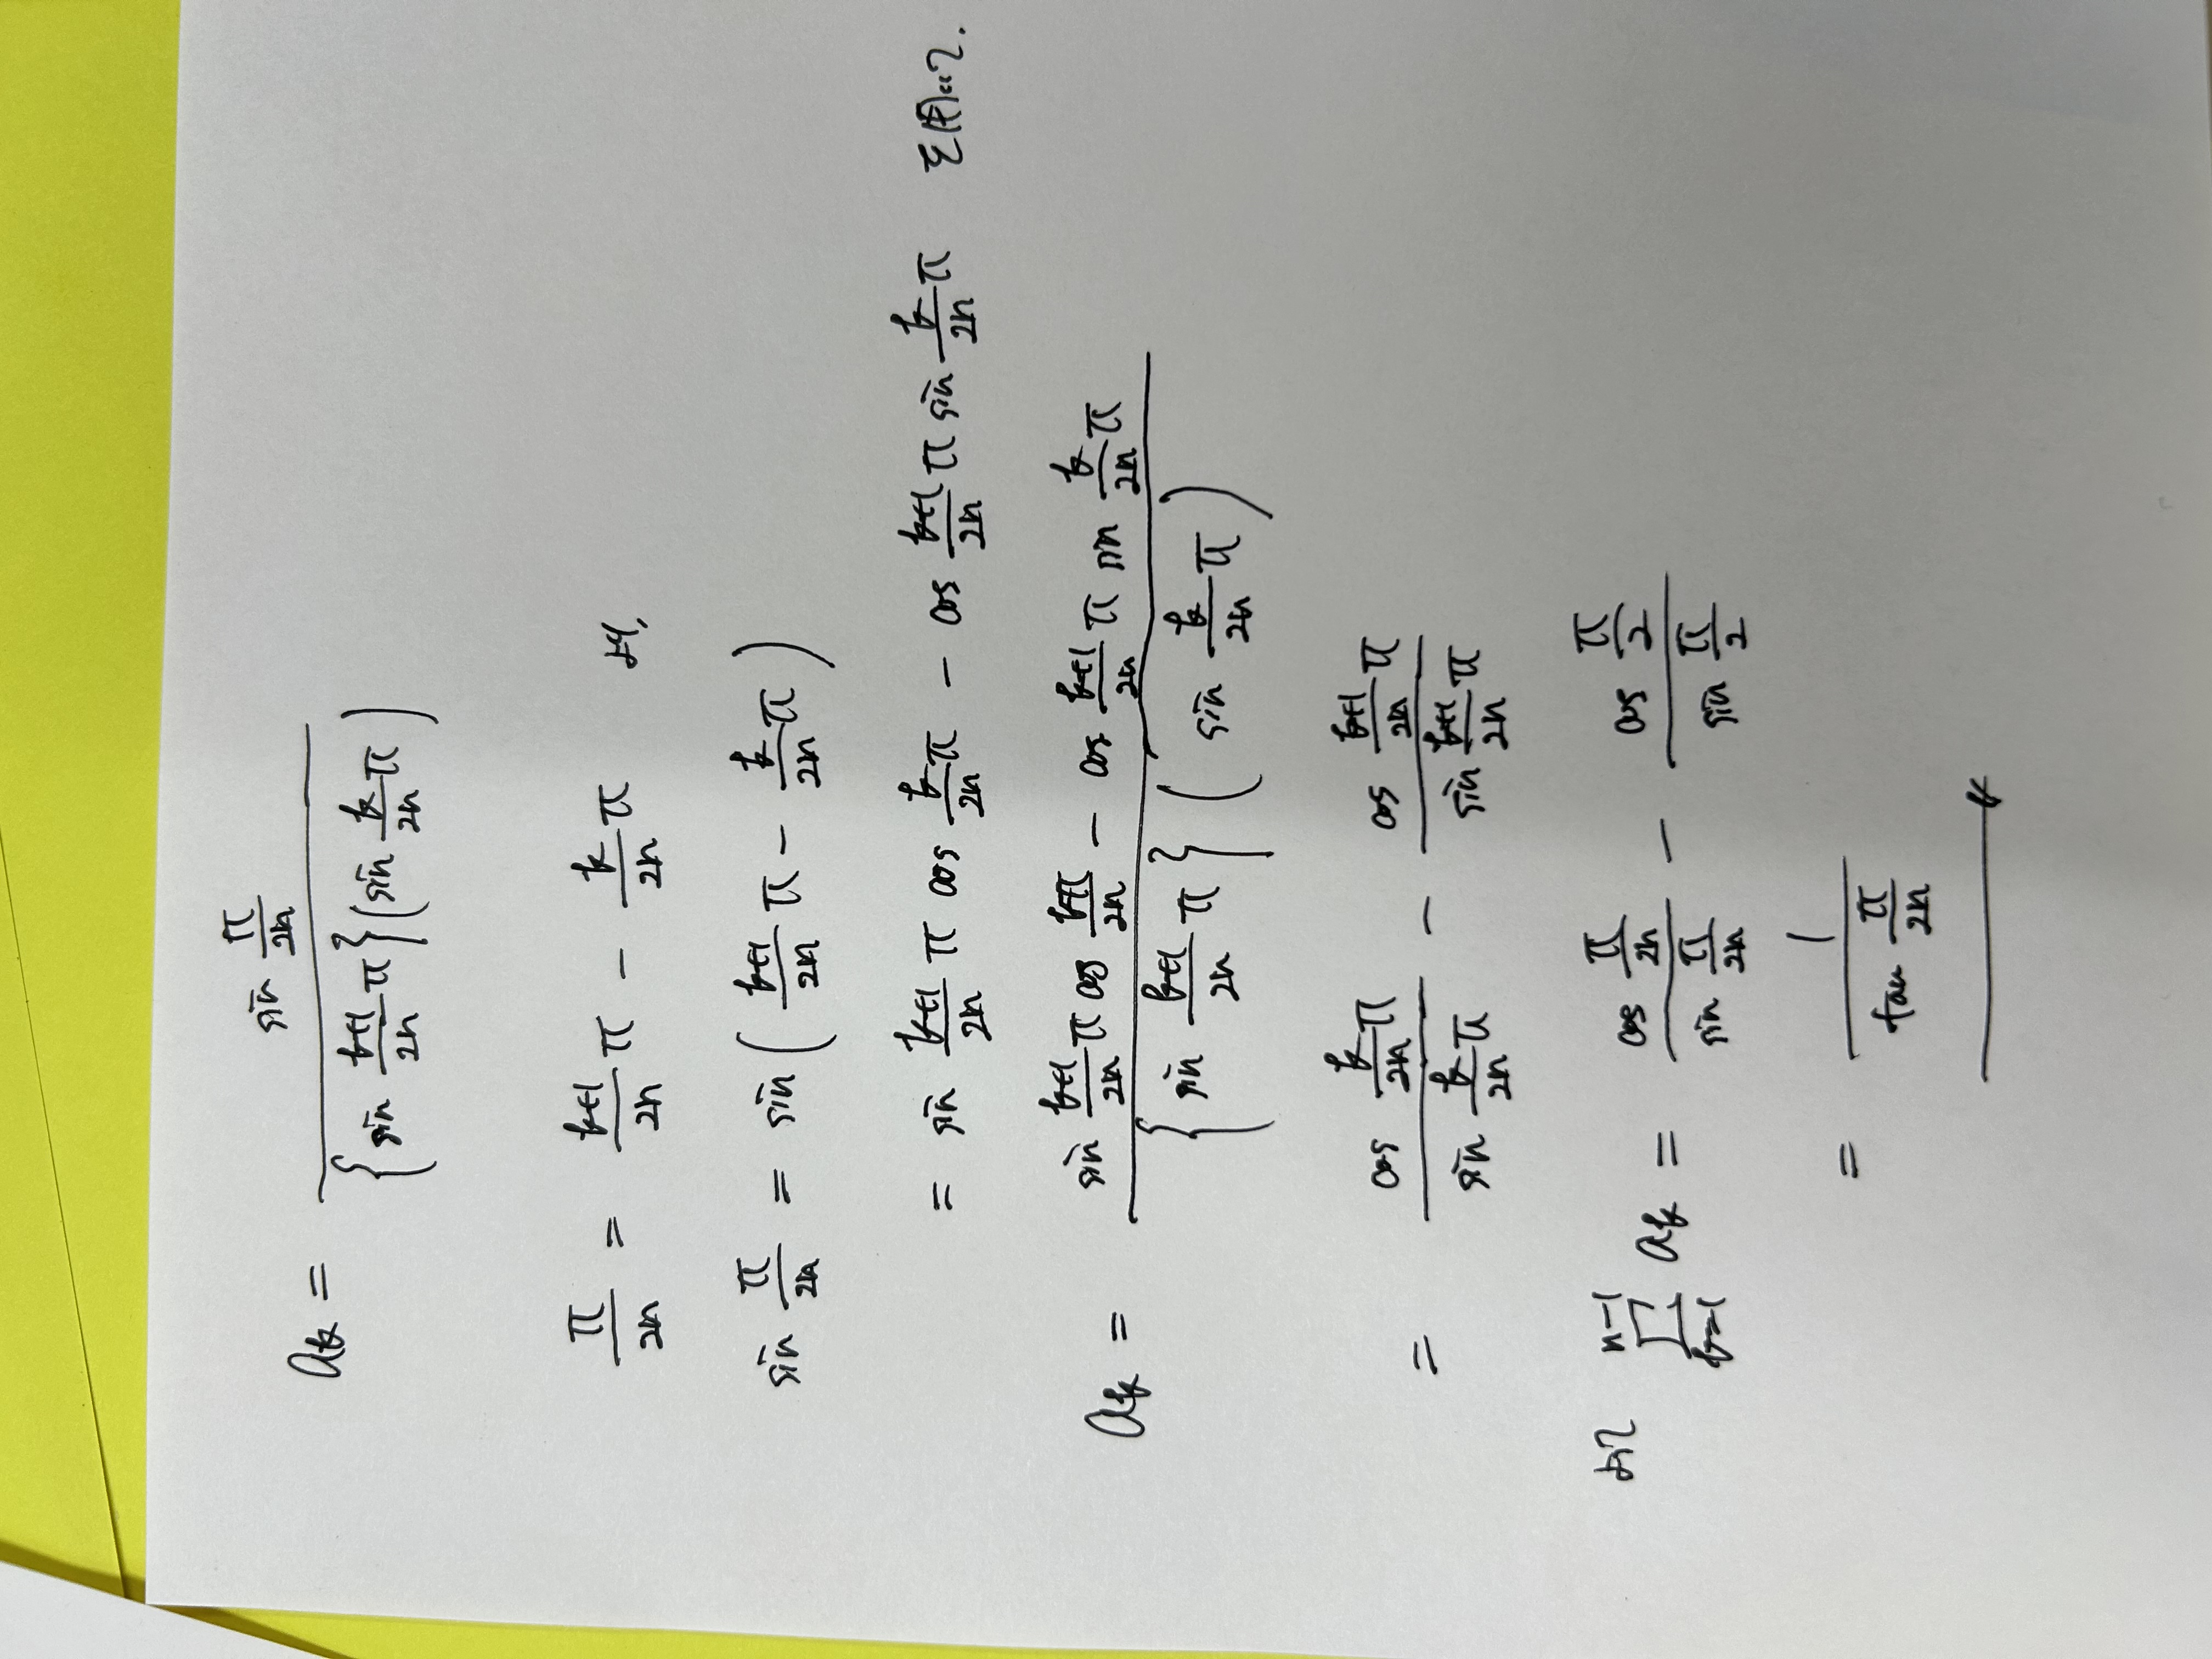 a_k = \frac{\sin \frac{π}{2n}}{\{\sin \frac{k+1}{2n}π\}(\sin \frac{k}{2n}π)}
\frac{π}{2n} = \frac{k+1}{2n}π - \frac{k}{2n}π より,
\sin \frac{π}{2n} = \sin(\frac{k+1}{2n}π - \frac{k}{2n}π)
= \sin \frac{k+1}{2n}π \cos \frac{k}{2n}π - \cos \frac{k+1}{2n}π \sin \frac{k}{2n}π を用いて.
a_k = \frac{\sin \frac{k+1}{2n}π \cos \frac{kπ}{2n} - \cos \frac{k+1}{2n}π \sin \frac{k}{2n}π}{\{\sin \frac{k+1}{2n}π\}(\sin \frac{k}{2n}π)}
= \frac{\cos \frac{k}{2n}π}{\sin \frac{k}{2n}π} - \frac{\cos \frac{k+1}{2n}π}{\sin \frac{k+1}{2n}π}
よって \sum_{k=1}^{n-1} a_k = \frac{\cos \frac{π}{2n}}{\sin \frac{π}{2n}} - \frac{\cos \frac{π}{2}}{\sin \frac{π}{2}}
= \frac{1}{\tan \frac{π}{2n}}